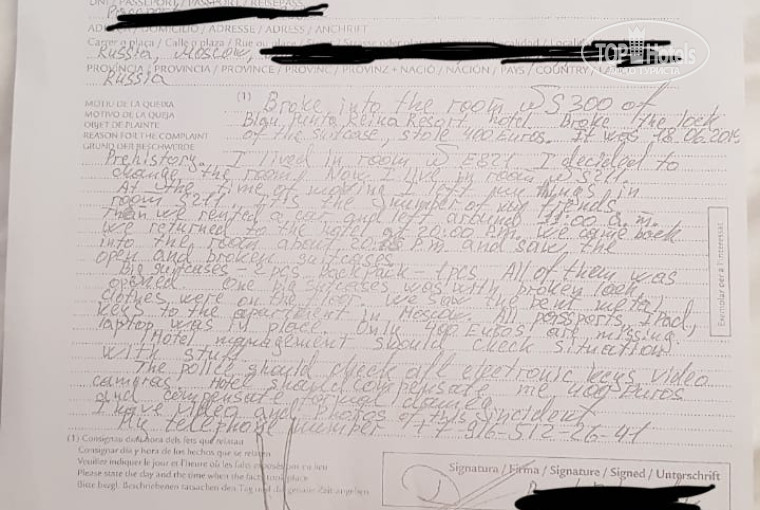 DNI / PASSAPORT / PASSPORT / REISEPASS
ADREÇA / DOMICILIO / ADRESSE / ADRESS / ANSCHRIFT
Carrer o plaça / Calle o plaza / Rue ou place
Russia, Moscow,
PROVÍNCIA / PROVINCIA / PROVINCE / PROVINC / PROVINZ + NACIÓ / NACIÓN / PAYS / COUNTRY /
Russia
TOP Hotels
MOTIU DE LA QUEIXA
MOTIVO DE LA QUEJA
OBJET DE PLAINTE
REASON FOR THE COMPLAINT
GRUND DER BESCHWERDE
(1) Broke into the room № S300 of
Blau punta Reina Resort hotel. Broke the lock
of the suitcase, stole 400 Euros. It was 18.06.201
Prehistory. I lived in room № E821. I decided to
change the room. Now I live in room № S211.
At the time of moving I left my things in
room S211. It's the number of my friends.
Then we rented a car and left around 11:00 a.m.
We returned to the hotel at 20:00 P.m. We came back
into the room about 20: P.m. and saw the
open and broken suitcases.
Big suitcases - 2 pcs. Backpack - 1 pcs. All of them was
opened. One big suitcases was with broken lock
clothes were on the floor. We saw the bent metal
keys to the apartment in Moscow. All passports, IPad,
laptop was in place. Only 400 Euros are missing.
Hotel management should check situation
with stuff.
The police should check all electronic keys, video
cameras. Hotel should compensate me 400 Euros
and compensate for
I have video and photos of this incident
My telephone number +7-916-512-26-41
Exemplar per a l'interessat
(1) Consignar dia i hora dels fets que relataa
Consignar día y hora de los hechos que se relaten
Veuillez indiquer le jour et l'heure où les faits exposés ont eu lieu
Please state the day and the time when the facts took place
Bitte bezgl. Beschriebenen tatsachen den Tag und die genaue Zeit angeben
Signatura / Firma / Signature / Signed / Unterschrift